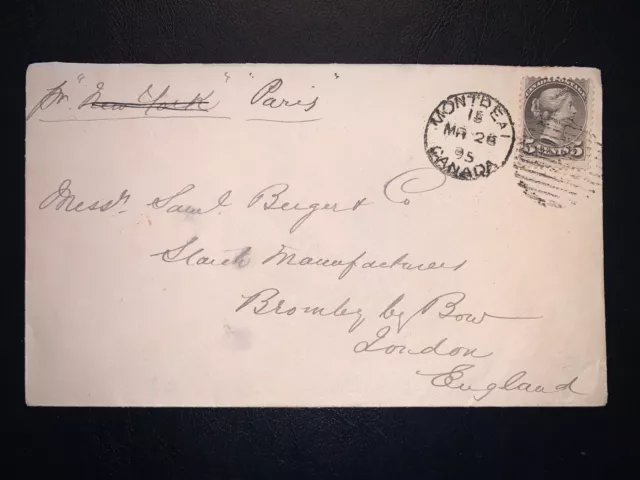 pr "New York" "Paris"
MONTREAL
15
MR 28
95
CANADA
5 CENTS 5
Messrs Saml. Berger & Co
Starch Manufacturers
Bromley by Bow
London
England